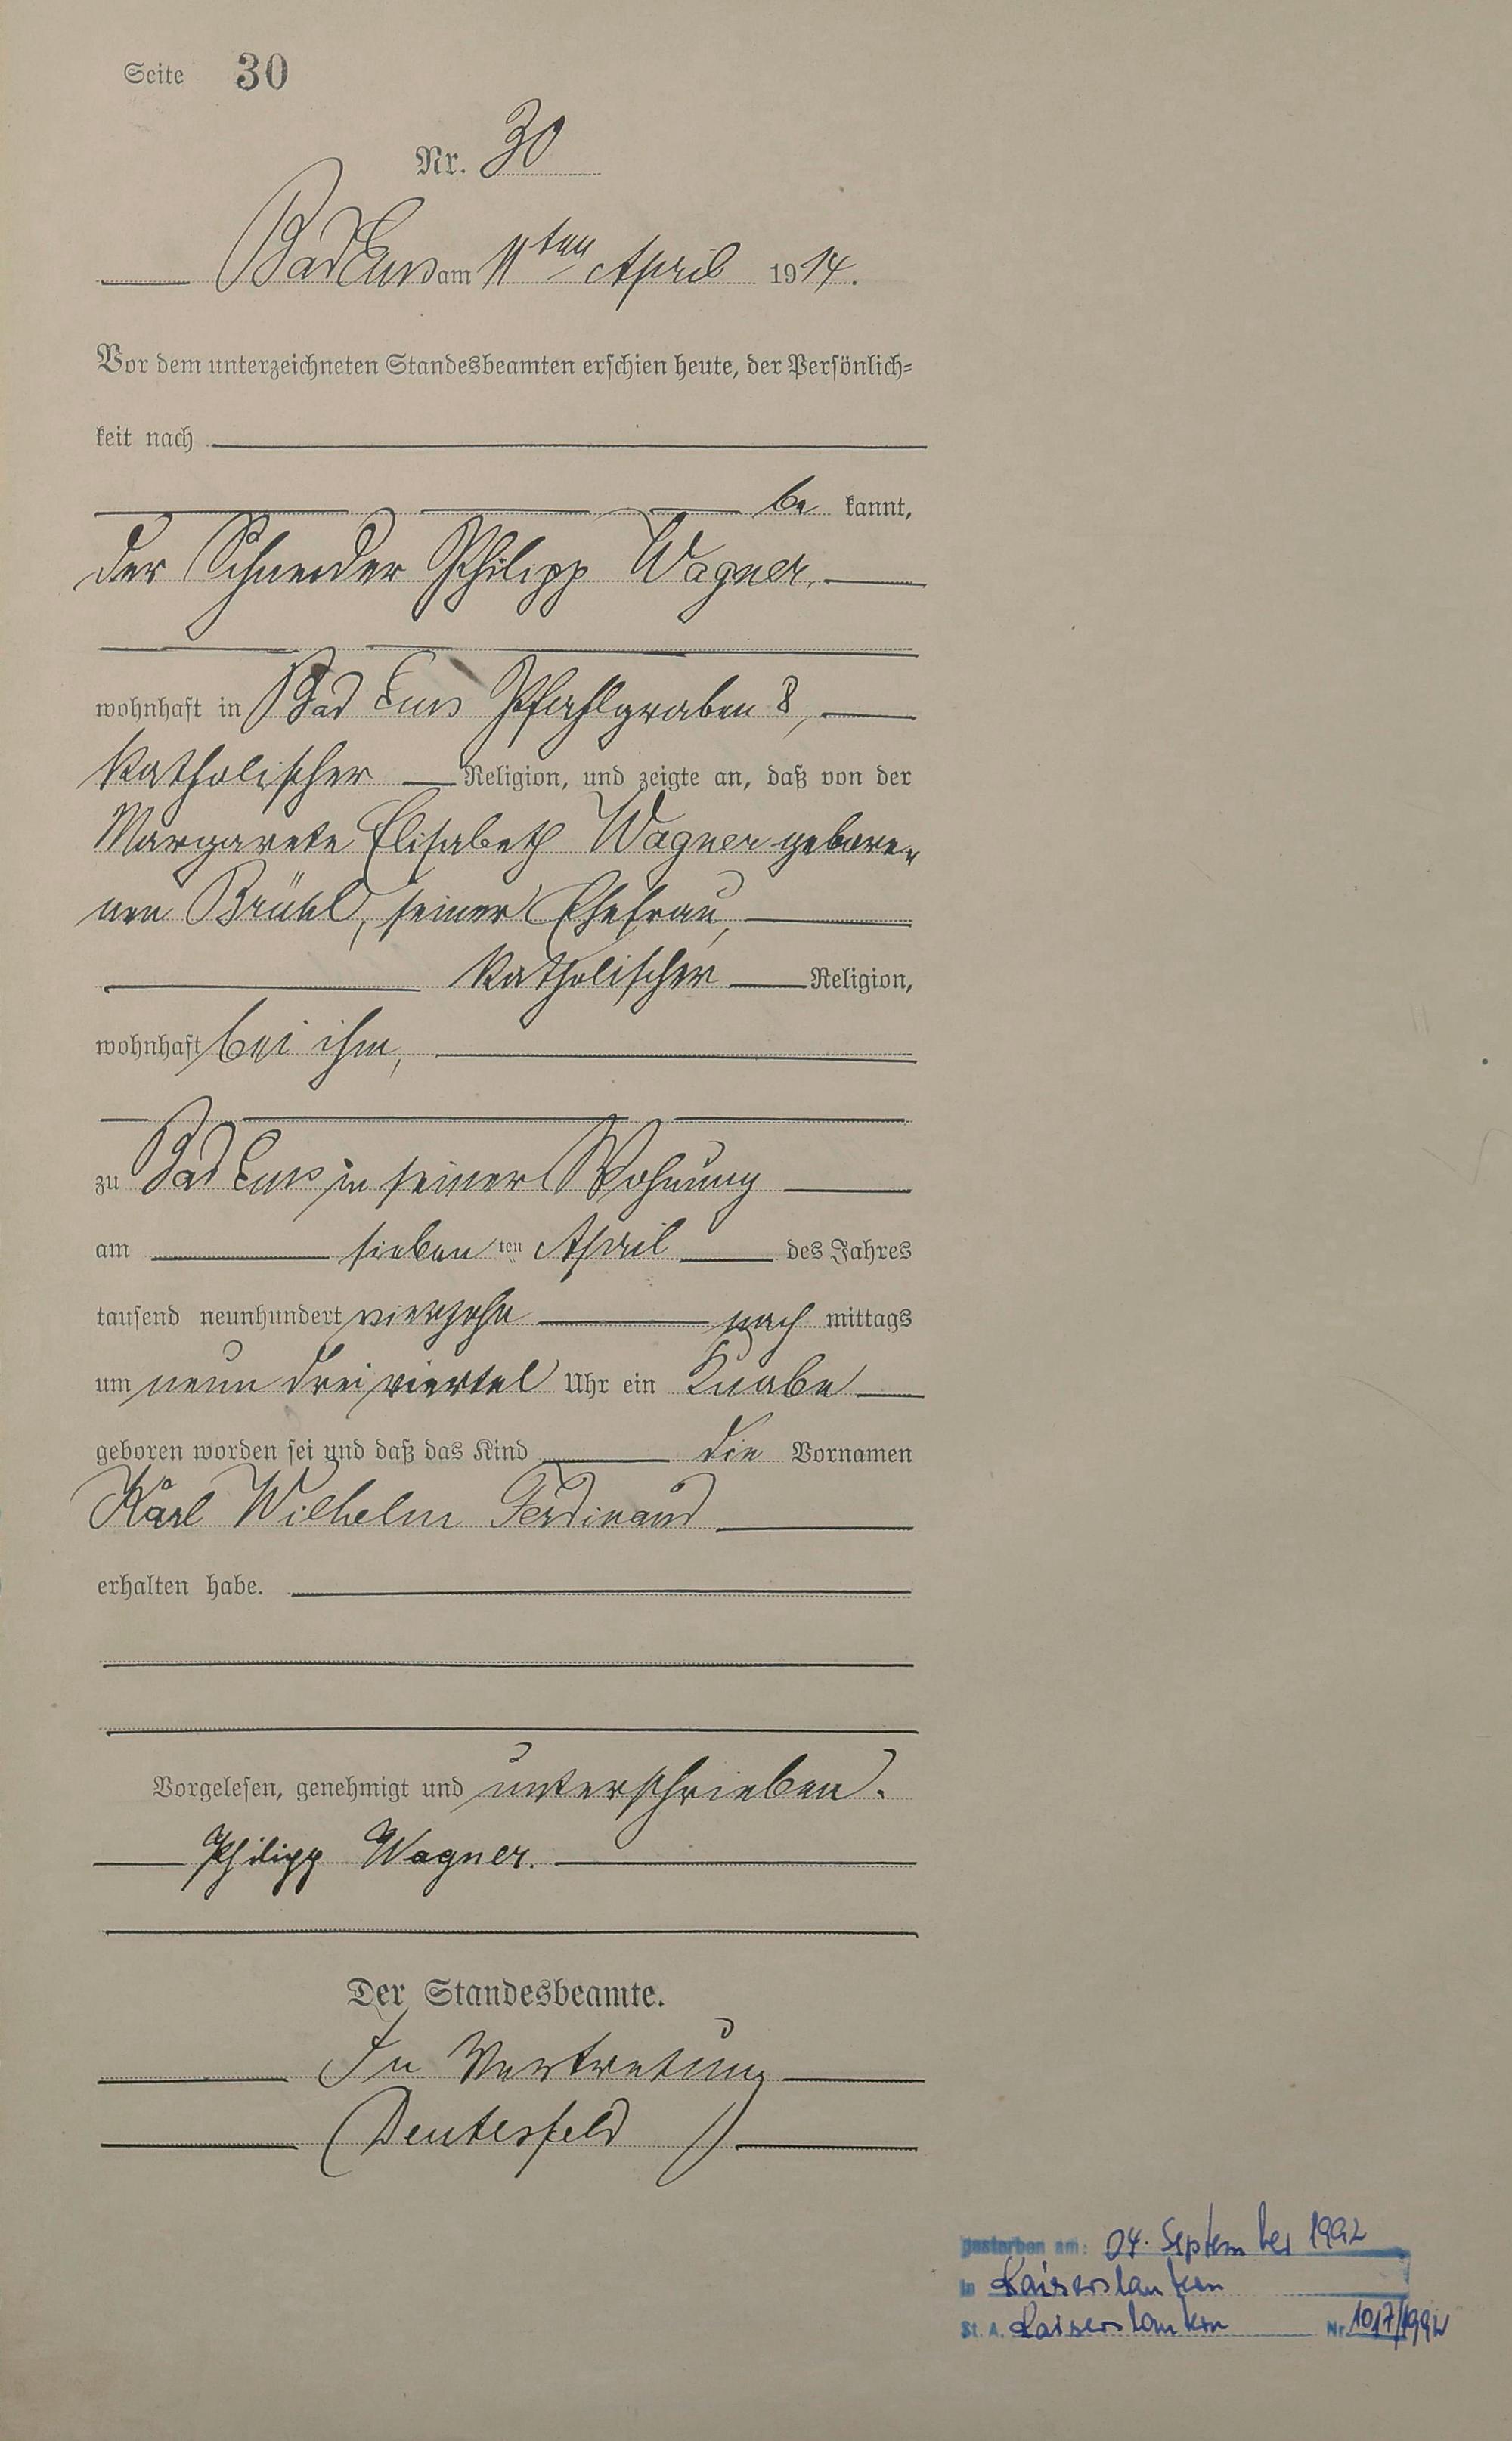 Seite 30
Nr. 30
Bad Ems am 11ten April 1914.
Vor dem unterzeichneten Standesbeamten erschien heute, der Persönlich=
keit nach
be kannt,
der Schneider Philipp Wagner,
wohnhaft in Bad Ems Pfahlgraben 8,
katholischer Religion, und zeigte an, daß von der
Margarete Elisabeth Wagner gebore-
nen Brühl, seiner Ehefrau,
katholischer Religion,
wohnhaft bei ihm,
zu Bad Ems in seiner Wohnung
am siebenten April des Jahres
tausend neunhundert vierzehn nach mittags
um neun dreiviertel Uhr ein Knabe
geboren worden sei und daß das Kind die Vornamen
Karl Wilhelm Ferdinand
erhalten habe.
Vorgelesen, genehmigt und unterschrieben.
Philipp Wagner.
Der Standesbeamte.
In Vertretung
Deutesfeld
gestorben am: 04. September 1992
in Kaiserslautern
St. A. Kaiserslautern Nr. 1017/1992